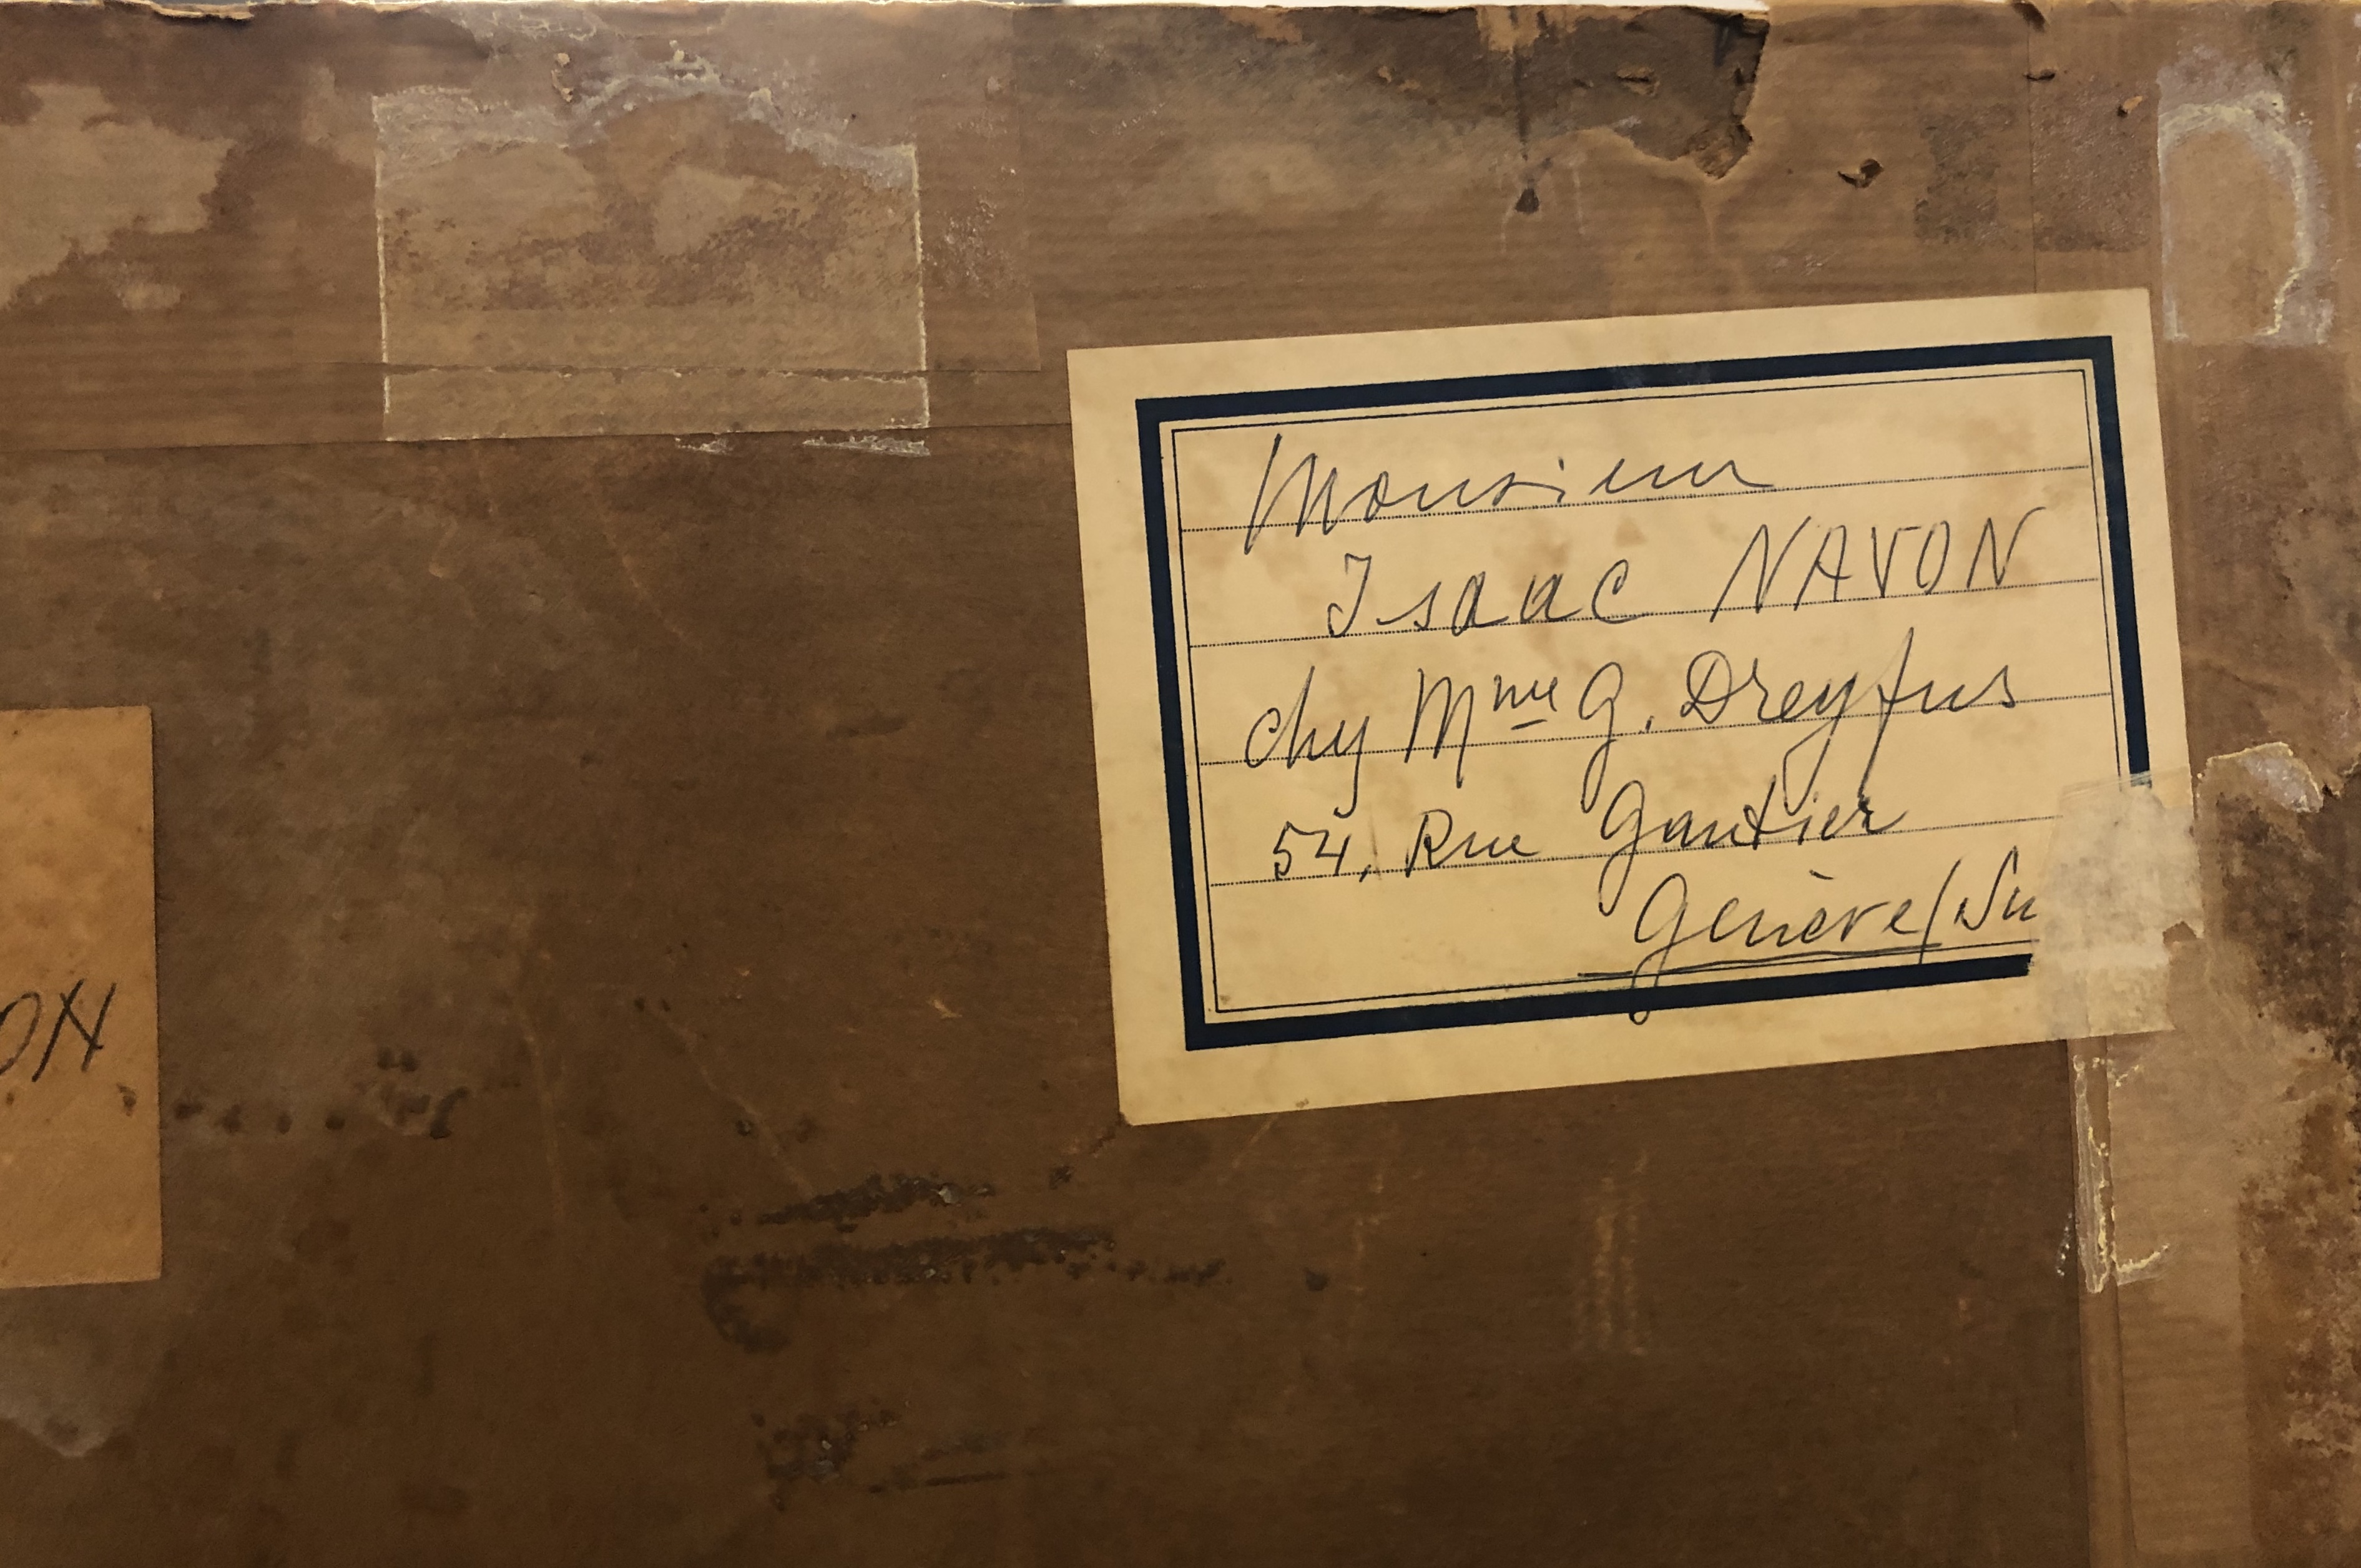 ON
Monsieur
Isaac NAVON
chez Mme G. Dreyfus
54, Rue Gautier
Genève/Su